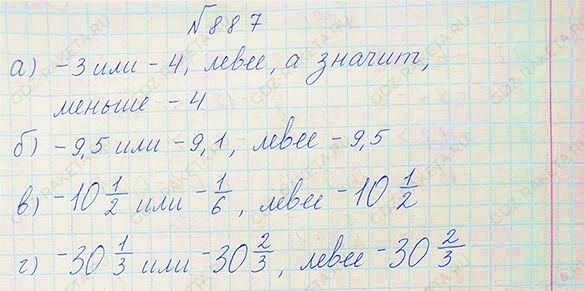 №887
а) -3 или -4, левее, а значит,
меньше -4
б) -9,5 или -9,1, левее -9,5
в) -10 1/2 или -1/6, левее -10 1/2
г) -30 1/3 или -30 2/3, левее -30 2/3